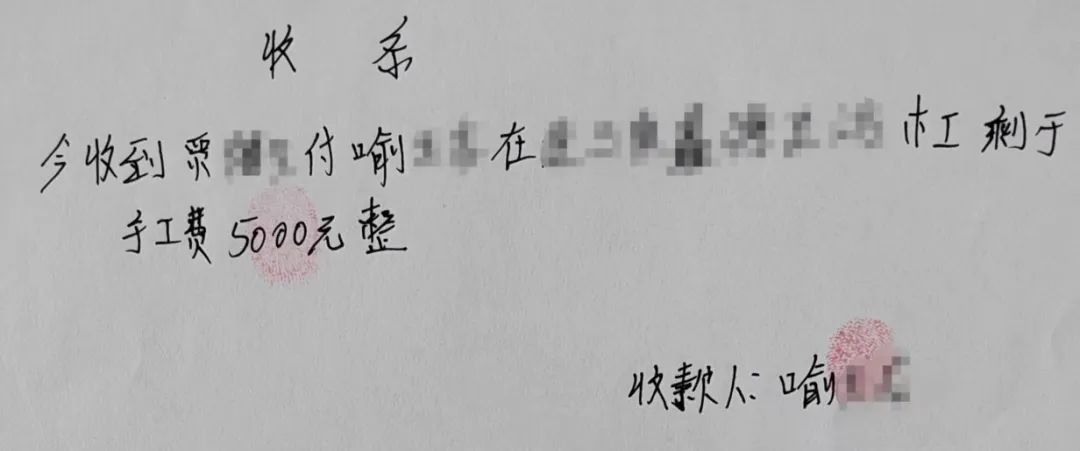 收条
今收到贾付喻在木工剩于
手工费5000元整
收款人:喻